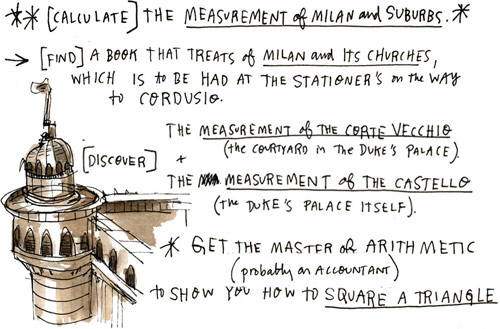 ** [CALCULATE] THE MEASUREMENT of MILAN and SUBURBS. *
→ [FIND] A BOOK THAT TREATS of MILAN and ITS CHURCHES,
WHICH IS to BE HAD AT THE STATIONER'S on the WAY
to CORDUSIO.
THE MEASUREMENT of THE CORTE VECCHIO
(the COURTYARD in THE DUKE'S PALACE).
[DISCOVER] +
THE MEASUREMENT of THE CASTELLO
(THE DUKE'S PALACE ITSELF).
* GET THE MASTER of ARITHMETIC
(probably an ACCOUNTANT)
to SHOW YOU HOW to SQUARE A TRIANGLE